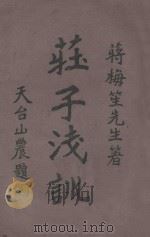 蔣梅笙先生著
莊子淺訓
天台山農題